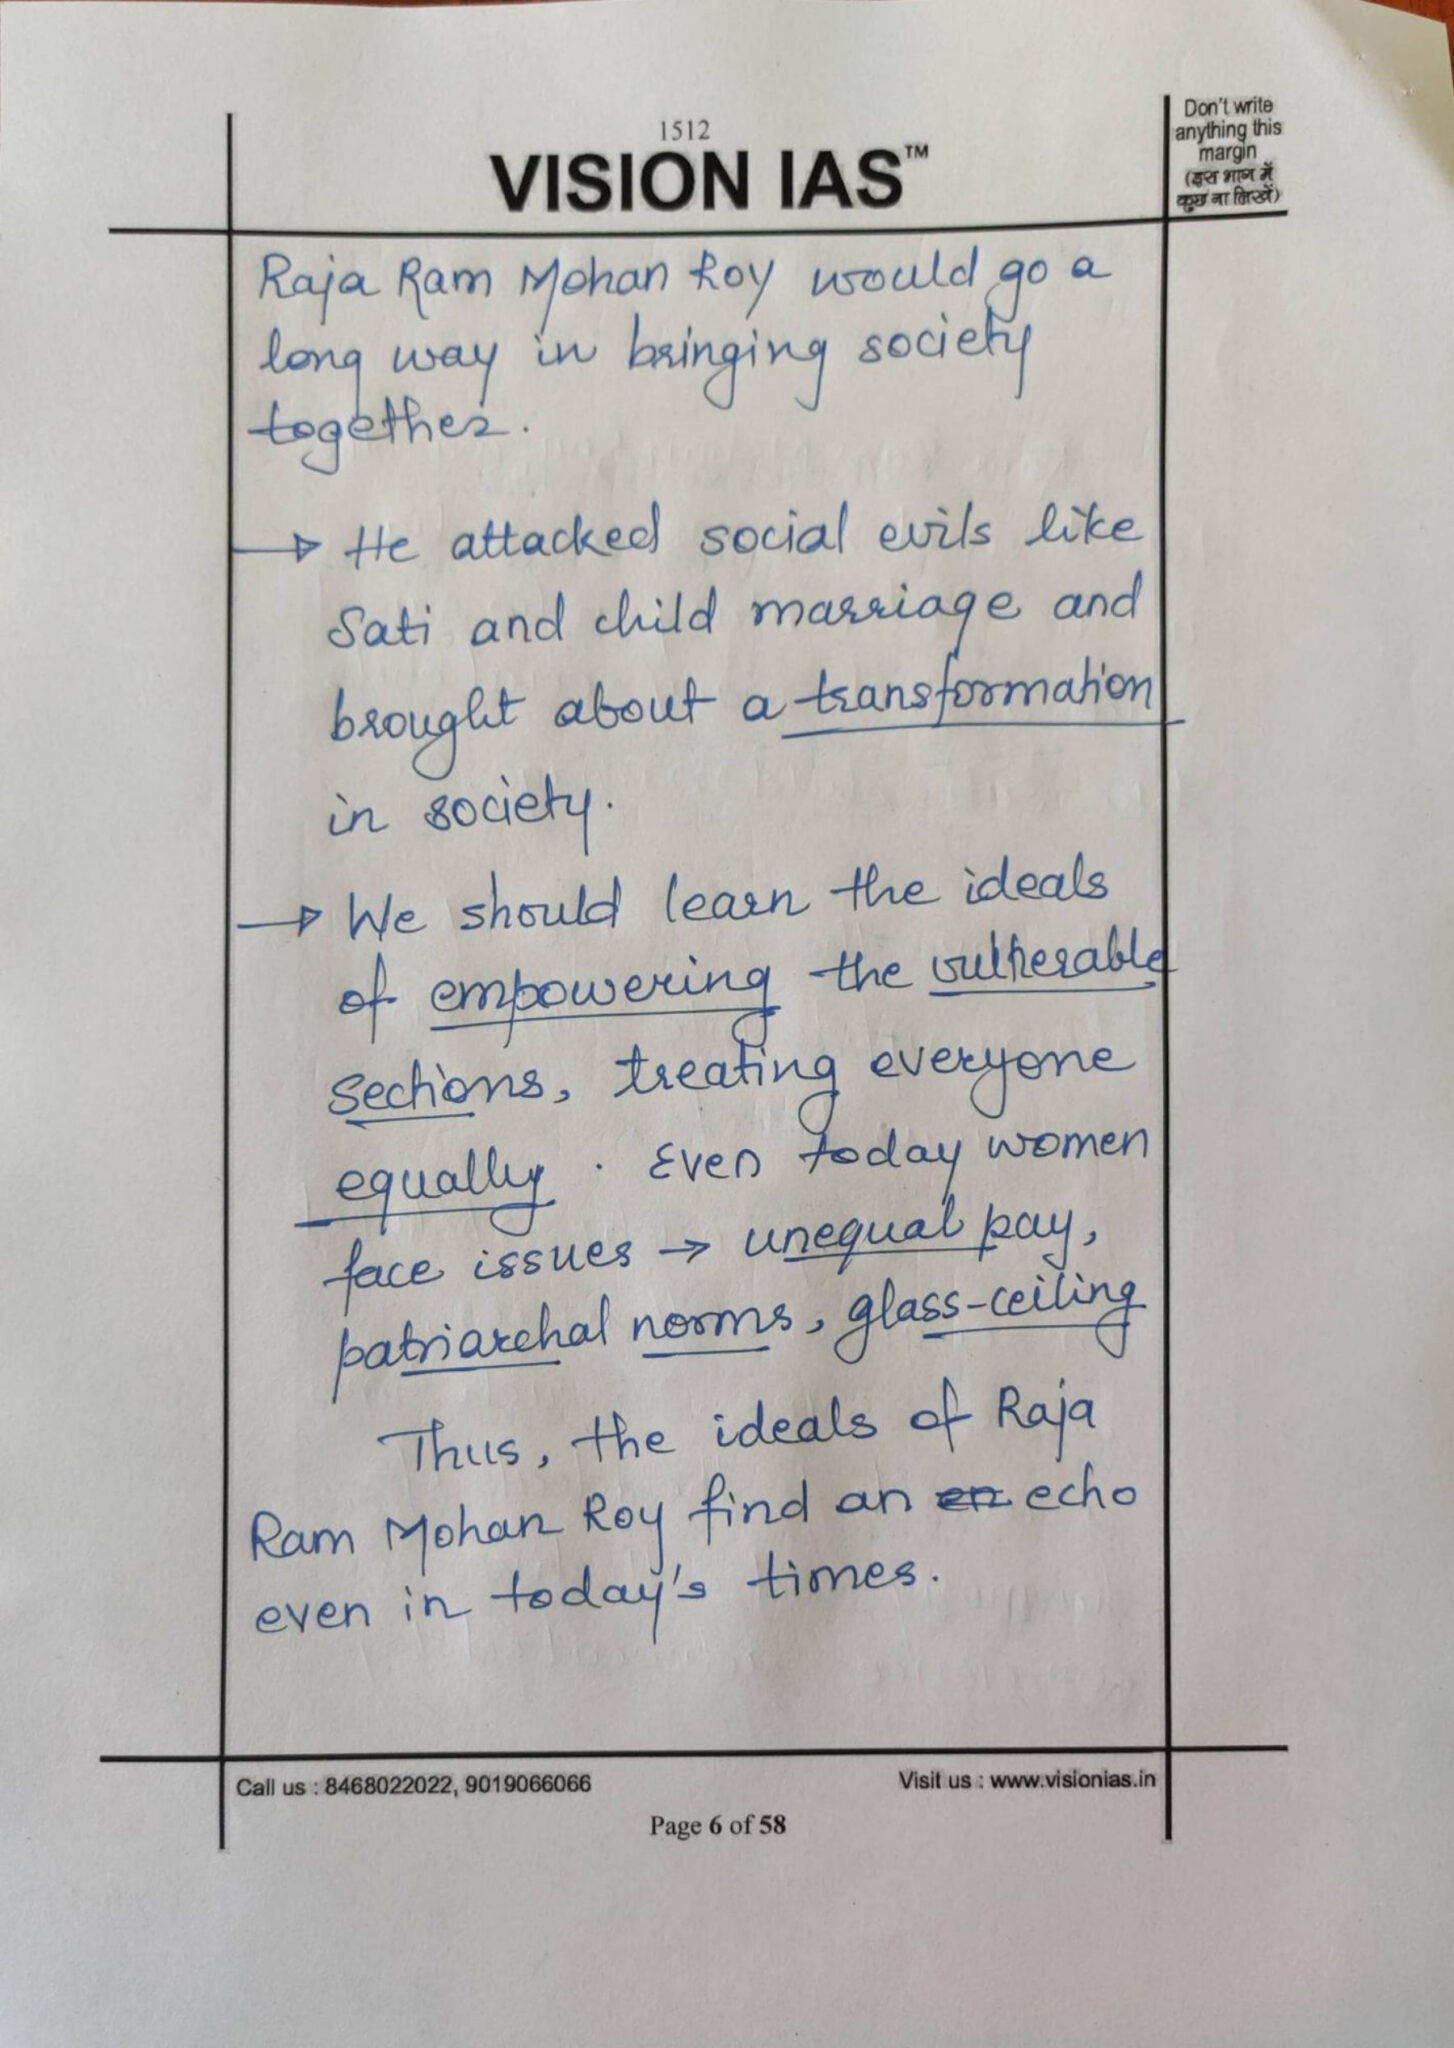 1512
VISION IAS™
Don't write
anything this
margin
(इस भाग में
कुछ ना लिखें)
Raja Ram Mohan Roy would go a
long way in bringing society
together.
→ He attacked social evils like
Sati and child marriage and
brought about a transformation
in society.
→ We should learn the ideals
of empowering the vulnerable
sections, treating everyone
equally. Even today women
face issues → unequal pay,
patriarchal norms, glass-ceiling
Thus, the ideals of Raja
Ram Mohan Roy find an en echo
even in today's times.
Call us : 8468022022, 9019066066
Visit us : www.visionias.in
Page 6 of 58